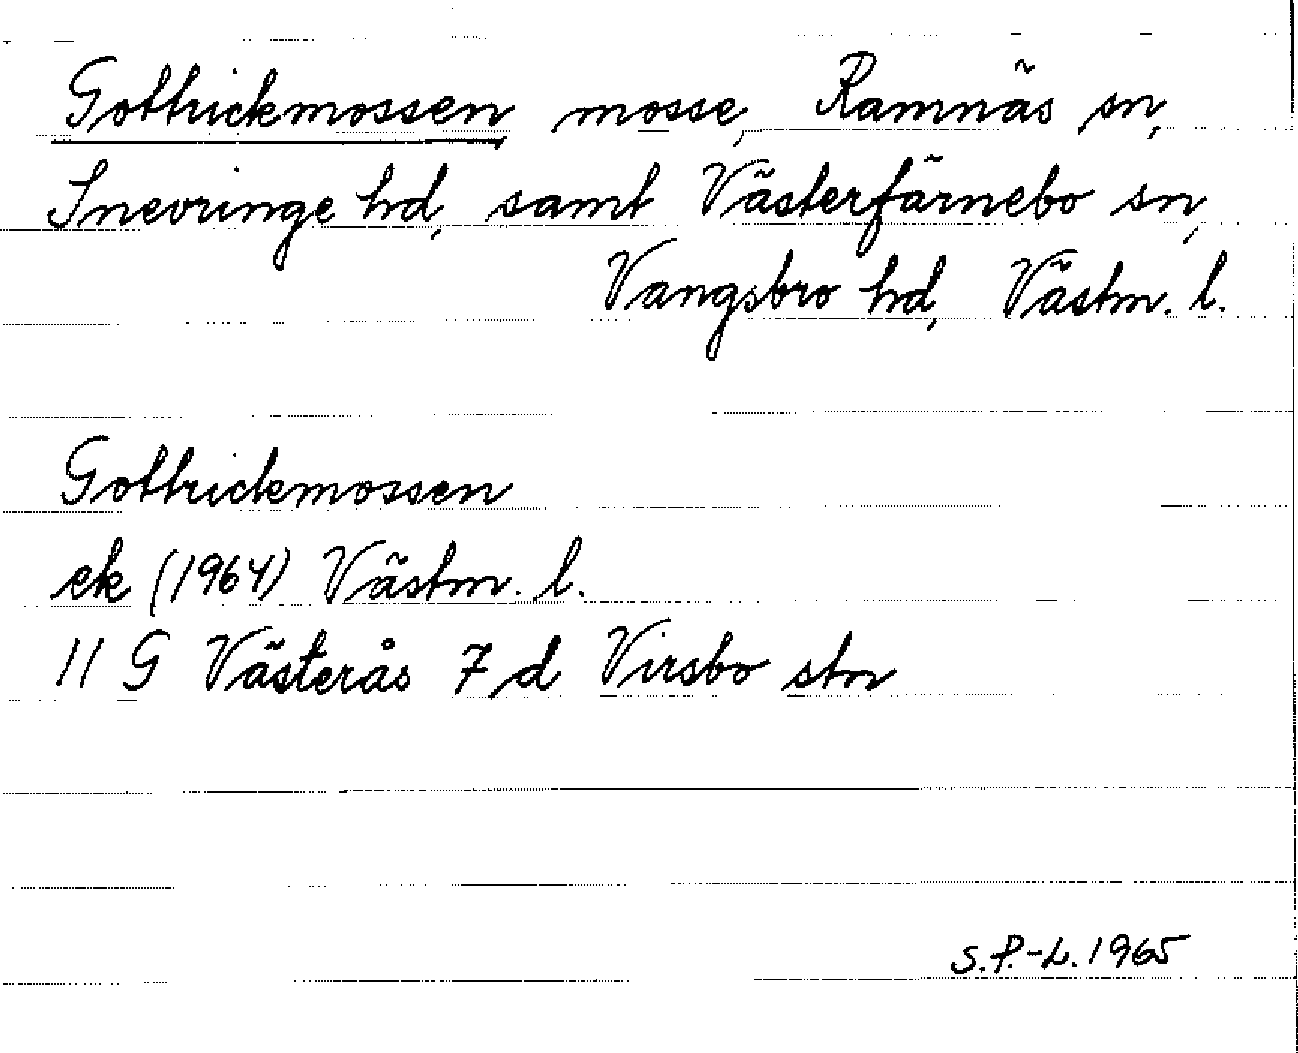 Gottrickmossen, mosse, Ramnäs sn,
Snevringe hd, samt Västerfärnebo sn,
Vangsbro hd, Västm. l.
Gottrickmossen
ek (1964) Västm. l.
11 G Västerås 7 d Virsbo stn
S.P.-L. 1965